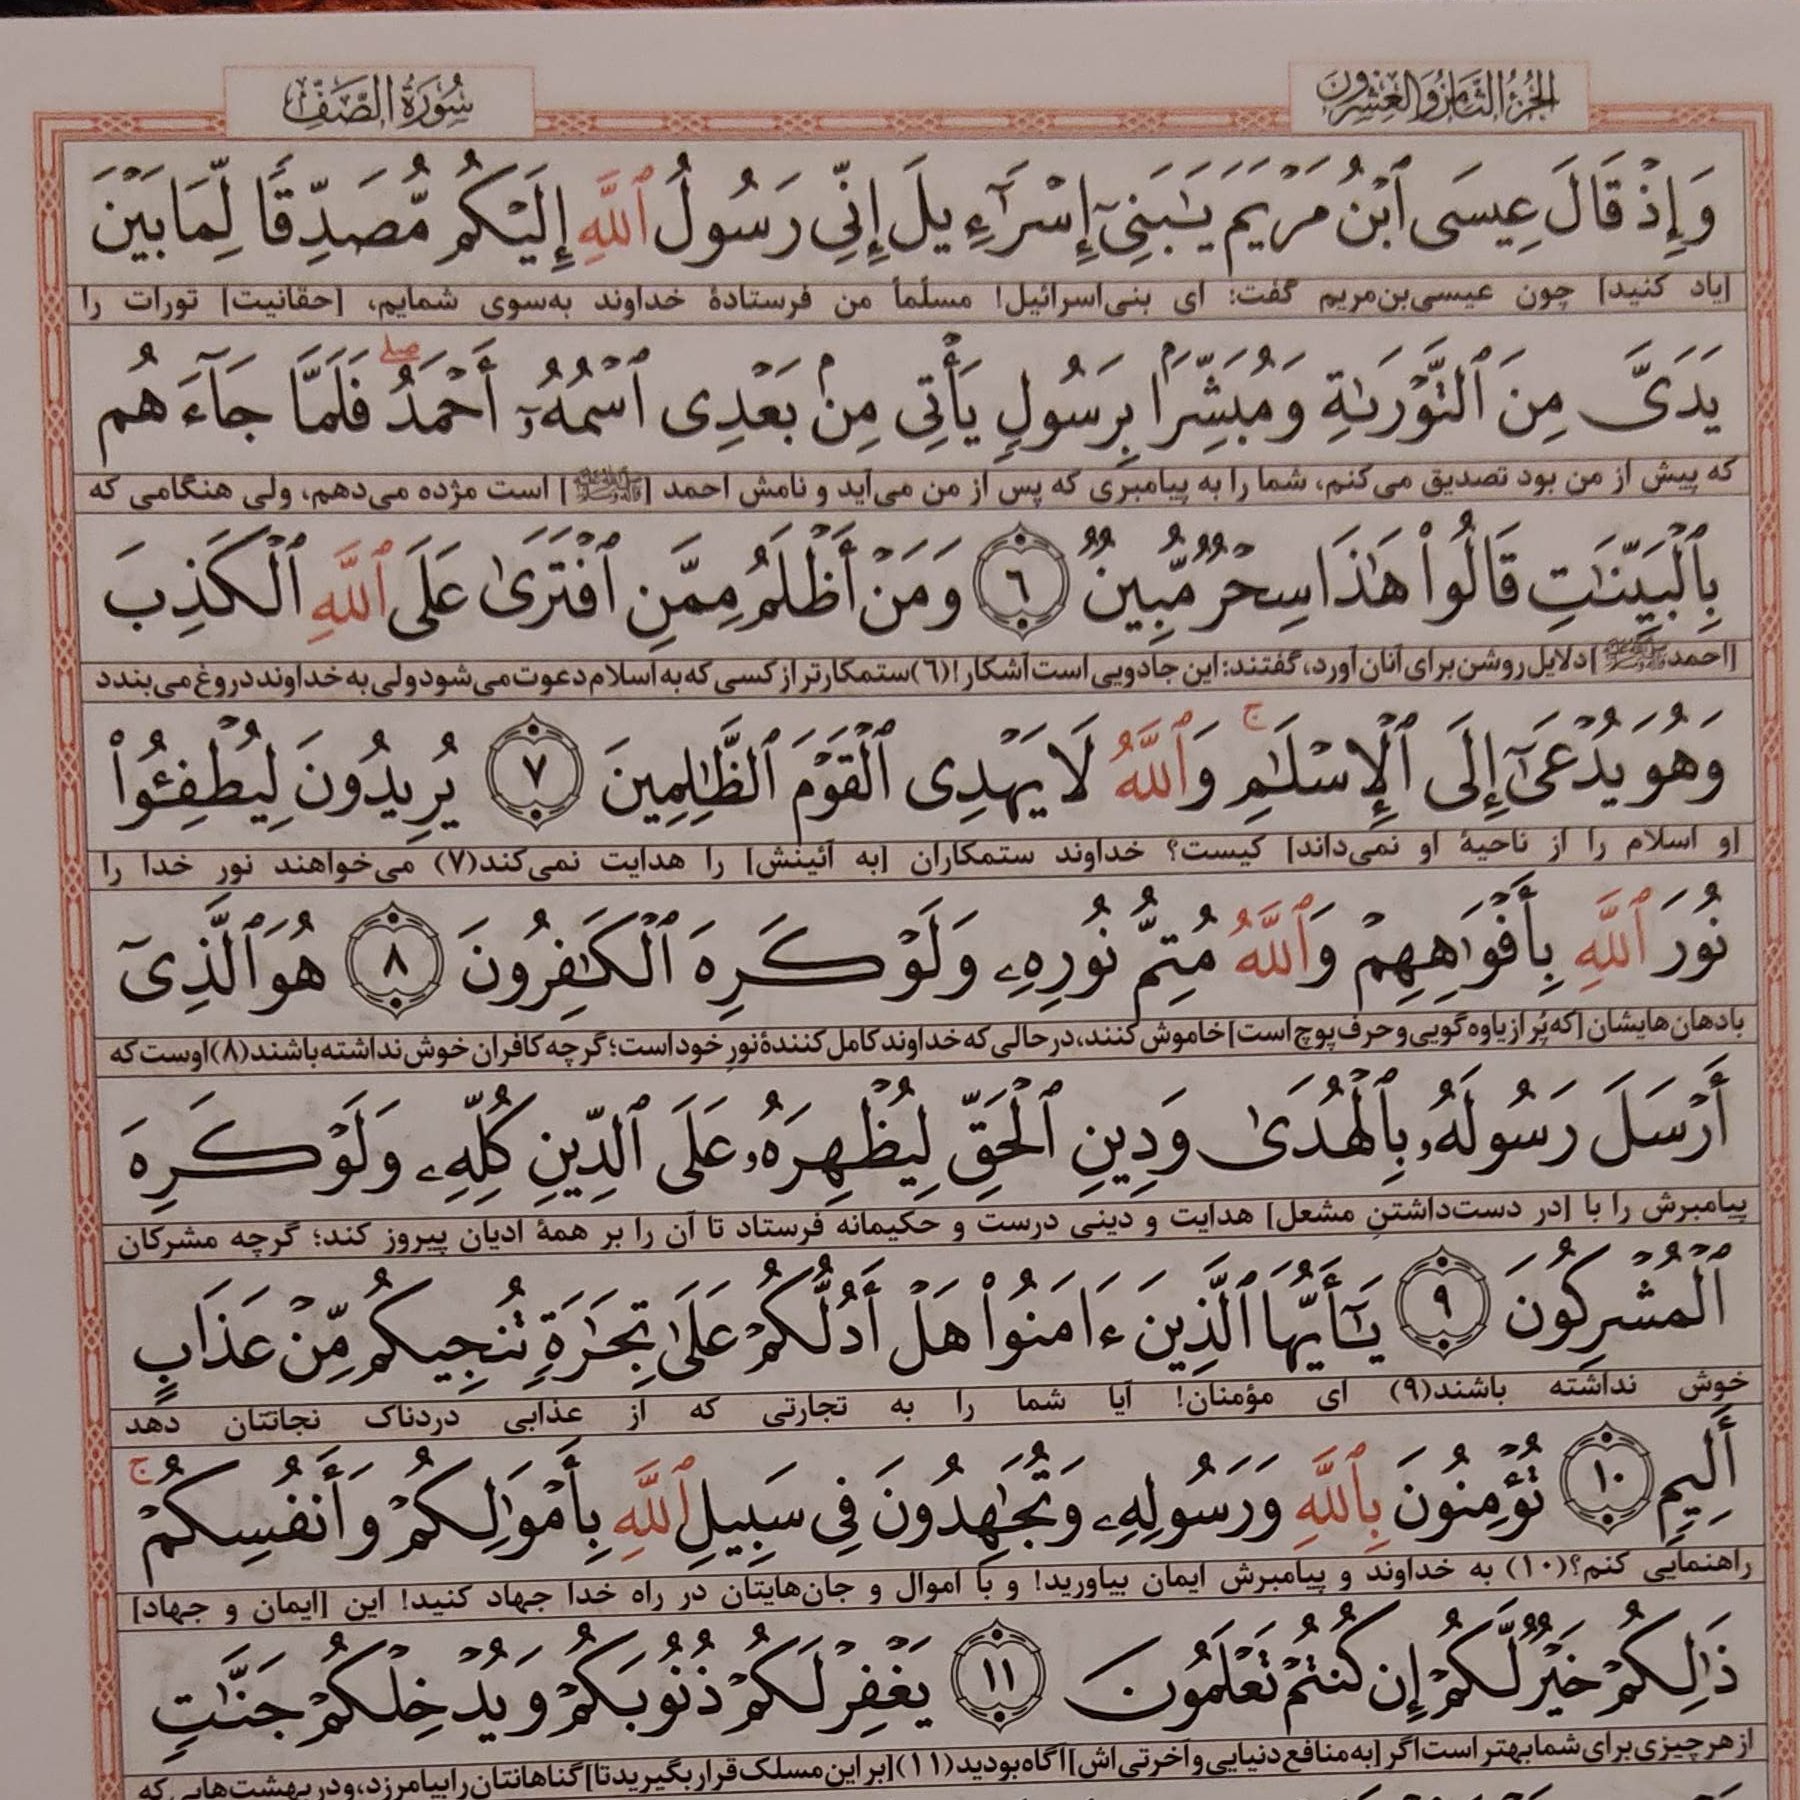 الجزء الثامن والعشرون
سورة الصف
وَإِذْ قَالَ عِيسَى ٱبْنُ مَرْيَمَ يَٰبَنِىٓ إِسْرَٰٓءِيلَ إِنِّى رَسُولُ ٱللَّهِ إِلَيْكُم مُّصَدِّقًا لِّمَا بَيْنَ
[یاد کنید] چون عیسی‌بن‌مریم گفت: ای بنی‌اسرائیل! مسلّماً من فرستادهٔ خداوند به‌سوی شمایم، [حقانیت] تورات را
يَدَىَّ مِنَ ٱلتَّوْرَىٰةِ وَمُبَشِّرًۢا بِرَسُولٍ يَأْتِى مِنۢ بَعْدِى ٱسْمُهُۥٓ أَحْمَدُ ۖ فَلَمَّا جَآءَهُم
که پیش از من بود تصدیق می‌کنم، شما را به پیامبری که پس از من می‌آید و نامش احمد [ﷺ] است مژده می‌دهم، ولی هنگامی که
بِٱلْبَيِّنَٰتِ قَالُوا۟ هَٰذَا سِحْرٌ مُّبِينٌ ٦ وَمَنْ أَظْلَمُ مِمَّنِ ٱفْتَرَىٰ عَلَى ٱللَّهِ ٱلْكَذِبَ
[احمد ﷺ] دلایل روشن برای آنان آورد، گفتند: این جادویی است آشکار! (۶) ستمکارتر از کسی که به اسلام دعوت می‌شود ولی به خداوند دروغ می‌بندد
وَهُوَ يُدْعَىٰٓ إِلَى ٱلْإِسْلَٰمِ ۚ وَٱللَّهُ لَا يَهْدِى ٱلْقَوْمَ ٱلظَّٰلِمِينَ ٧ يُرِيدُونَ لِيُطْفِـُٔوا۟
[و اسلام را از ناحیهٔ او نمی‌داند] کیست؟ خداوند ستمکاران [به آئینش] را هدایت نمی‌کند(۷) می‌خواهند نور خدا را
نُورَ ٱللَّهِ بِأَفْوَٰهِهِمْ وَٱللَّهُ مُتِمُّ نُورِهِۦ وَلَوْ كَرِهَ ٱلْكَٰفِرُونَ ٨ هُوَ ٱلَّذِىٓ
با دهان‌هایشان [که پُر از یاوه‌گویی و حرف پوچ است] خاموش کنند، در حالی که خداوند کامل کنندهٔ نورِ خود است؛ گرچه کافران خوش نداشته باشند(۸) اوست که
أَرْسَلَ رَسُولَهُۥ بِٱلْهُدَىٰ وَدِينِ ٱلْحَقِّ لِيُظْهِرَهُۥ عَلَى ٱلدِّينِ كُلِّهِۦ وَلَوْ كَرِهَ
پیامبرش را با [در دست‌داشتنِ مشعل] هدایت و دینی درست و حکیمانه فرستاد تا آن را بر همهٔ ادیان پیروز کند؛ گرچه مشرکان
ٱلْمُشْرِكُونَ ٩ يَٰٓأَيُّهَا ٱلَّذِينَ ءَامَنُوا۟ هَلْ أَدُلُّكُمْ عَلَىٰ تِجَٰرَةٍ تُنجِيكُم مِّنْ عَذَابٍ
خوش نداشته باشند(۹) ای مؤمنان! آیا شما را به تجارتی که از عذابی دردناک نجاتتان دهد
أَلِيمٍ ١٠ تُؤْمِنُونَ بِٱللَّهِ وَرَسُولِهِۦ وَتُجَٰهِدُونَ فِى سَبِيلِ ٱللَّهِ بِأَمْوَٰلِكُمْ وَأَنفُسِكُمْ ۚ
راهنمایی کنم؟(۱۰) به خداوند و پیامبرش ایمان بیاورید! و با اموال و جان‌هایتان در راه خدا جهاد کنید! این [ایمان و جهاد]
ذَٰلِكُمْ خَيْرٌ لَّكُمْ إِن كُنتُمْ تَعْلَمُونَ ١١ يَغْفِرْ لَكُمْ ذُنُوبَكُمْ وَيُدْخِلْكُمْ جَنَّٰتٍ
از هر چیزی برای شما بهتر است اگر [به منافع دنیایی و آخرتی‌اش] آگاه بودید (۱۱) [بر این مسلک قرار بگیرید تا] گناهانتان را بیامرزد، و در بهشت‌هایی که